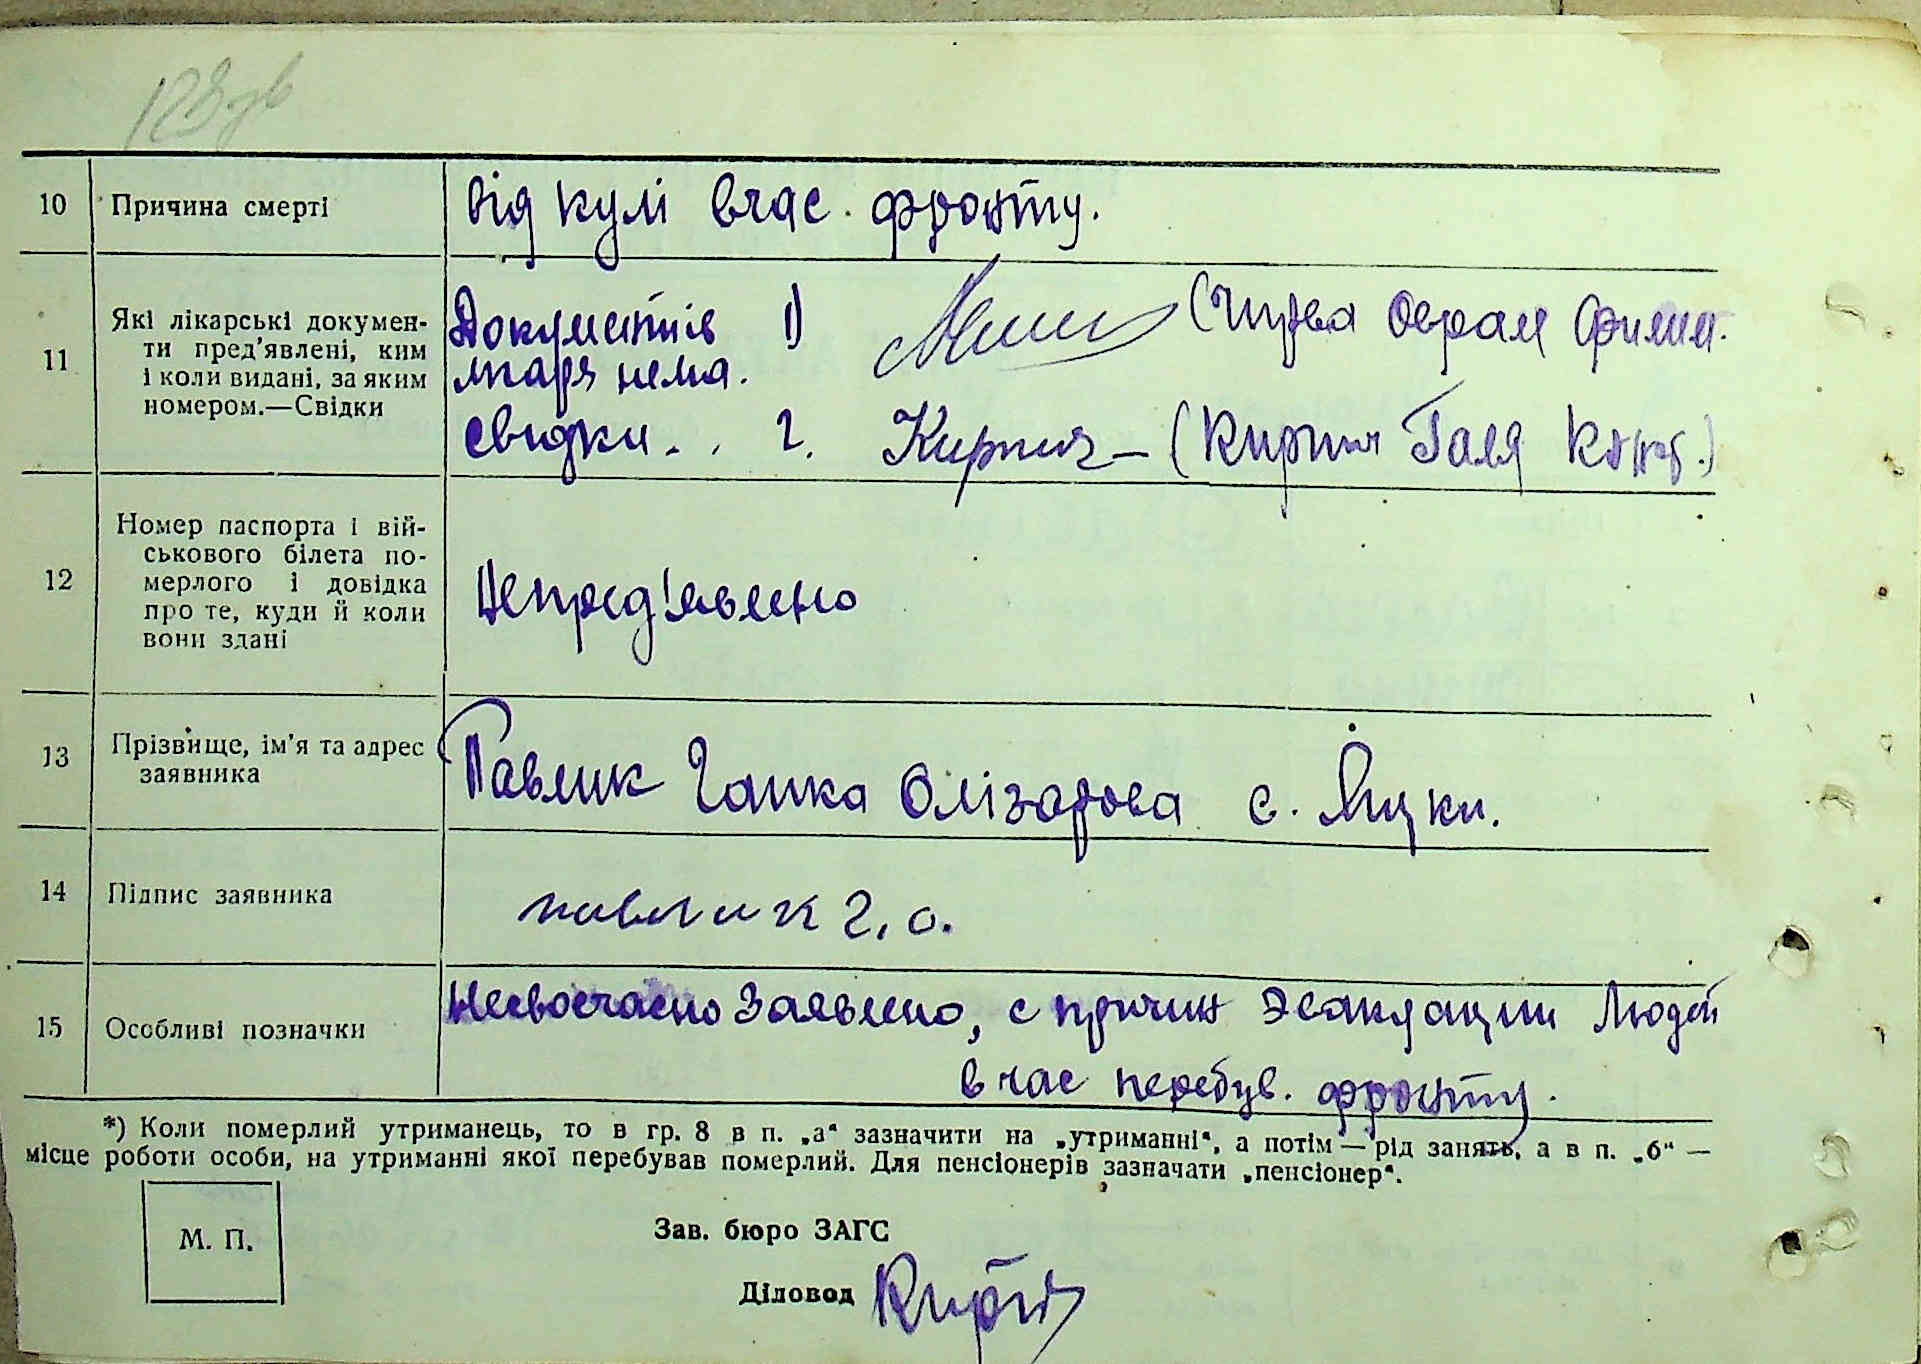 128зв
10 Причина смерті від кулі вчас. фронту.
11 Які лікарські докумен-
ти пред'явлені, ким
і коли видані, за яким
номером.—Свідки
Документів 1) (Чирва Овram Филип.
лікаря нема.
свідки.. 2. Кирпич – (Кирпич Галя Конд.)
12 Номер паспорта і вій-
ськового білета по-
мерлого і довідка
про те, куди й коли
вони здані
Непред'явлено
13 Прізвище, ім'я та адрес
заявника
Павлик Ганка Олізарова с. Яцки.
14 Підпис заявника павлик г, о.
15 Особливі позначки
Несвоєчасно заявлено, с причин Эвакуации Людей
в час перебув. фронту.
*) Коли померлий утриманець, то в гр. 8 в п. „а“ зазначити на „утриманні“, а потім — рід занять, а в п. „б“ —
місце роботи особи, на утриманні якої перебував померлий. Для пенсіонерів зазначати „пенсіонер“.
М. П.
Зав. бюро ЗАГС
Діловод